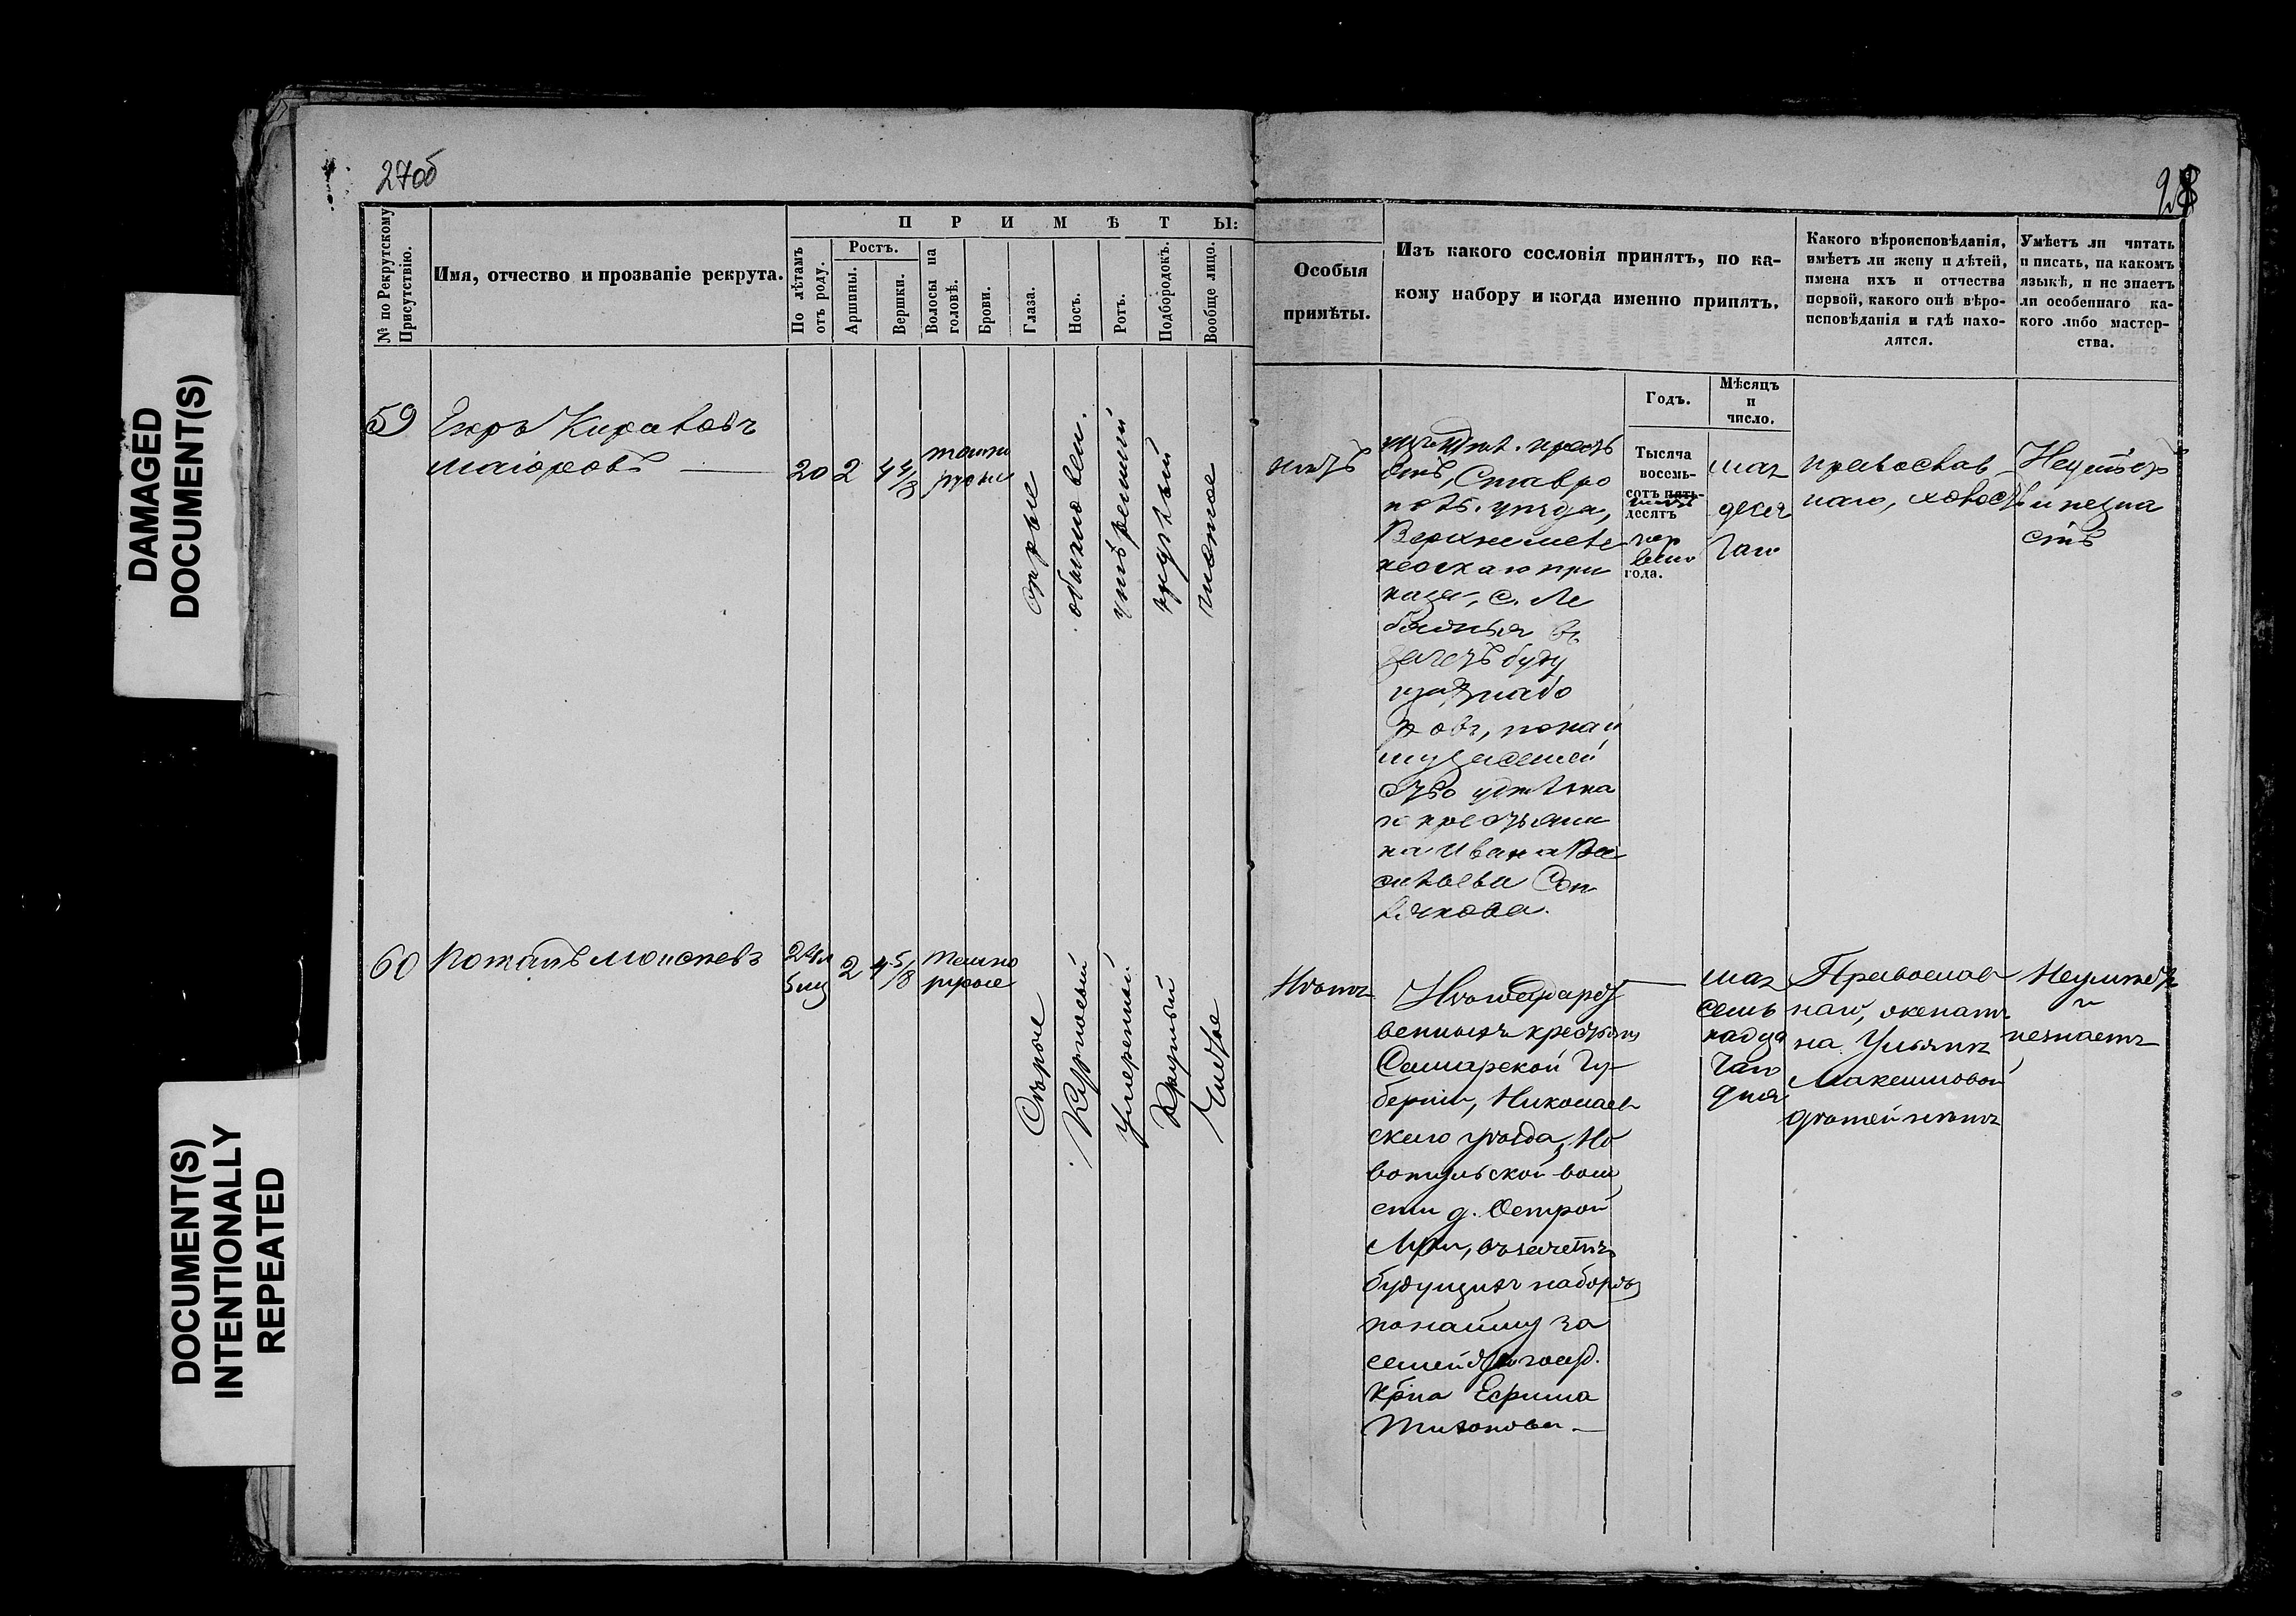 27об
28
DAMAGED
DOCUMENT(S)
DOCUMENT(S)
INTENTIONALLY
REPEATED
№ по Рекрутскому
Присутствію.
Имя, отчество и прозваніе рекрута.
ПРИМѢТЫ:
По лѣтамъ
отъ роду.
Ростъ.
Аршины.
Вершки.
Волосы на
головѣ.
Брови.
Глаза.
Носъ.
Ротъ.
Подбородокъ.
Вообще лицо.
Особыя
примѣты.
Изъ какого сословія принятъ, по ка-
кому набору и когда именно принятъ.
Какого вѣроисповѣданія,
имѣетъ ли жену и дѣтей,
имена ихъ и отчества
первой, какого онѣ вѣро-
исповѣданія и гдѣ нахо-
дятся.
Умѣетъ ли читать
и писать, на какомъ
языкѣ, и не знаетъ
ли особеннаго ка-
кого либо мастер-
ства.
Годъ.
Мѣсяцъ
и
число.
59
Егоръ
Маіоровъ
20
2
4 4/8
темно
русые
сѣрые
обыкновен.
умѣренный
круглый
чистое
нѣтъ
изъ удѣл. кресть
Ставро
пол. уѣзда,
при
каза, с. Ле
бяжья въ
зачетъ буду
щихъ набо
ровъ, по най
му за семей
ство удѣльна
го крестьяни
на Ивана Ва
сильева
Тысяча
восемь-
сотъ пять-
шесть
десятъ
пер
ваго
года.
мая
деся
таго
православ
наго, холостъ
Неумѣетъ
и незна
етъ
60
Потапъ Моисеевъ
24 л
5 мц
2
4 5/8
темно
русые
Сѣрые
Курносый
Умеренный
Круглый
Чистое
Нѣтъ
Изъ Государст
венныхъ крестьянъ
Самарской Гу-
берніи, Николаев
скаго уѣзда, Но
вотульской воло
сти д. Острой
Луки, въ зачетъ
будущихъ наборовъ
по найму за
семейство госуд.
кр-на Ефима
Тихонова
мая
семь
надца
таго
дня
Православ
ный, женатъ
на Ульянѣ
Максимовой
дѣтей нѣтъ
Неумѣетъ
и
незнаетъ